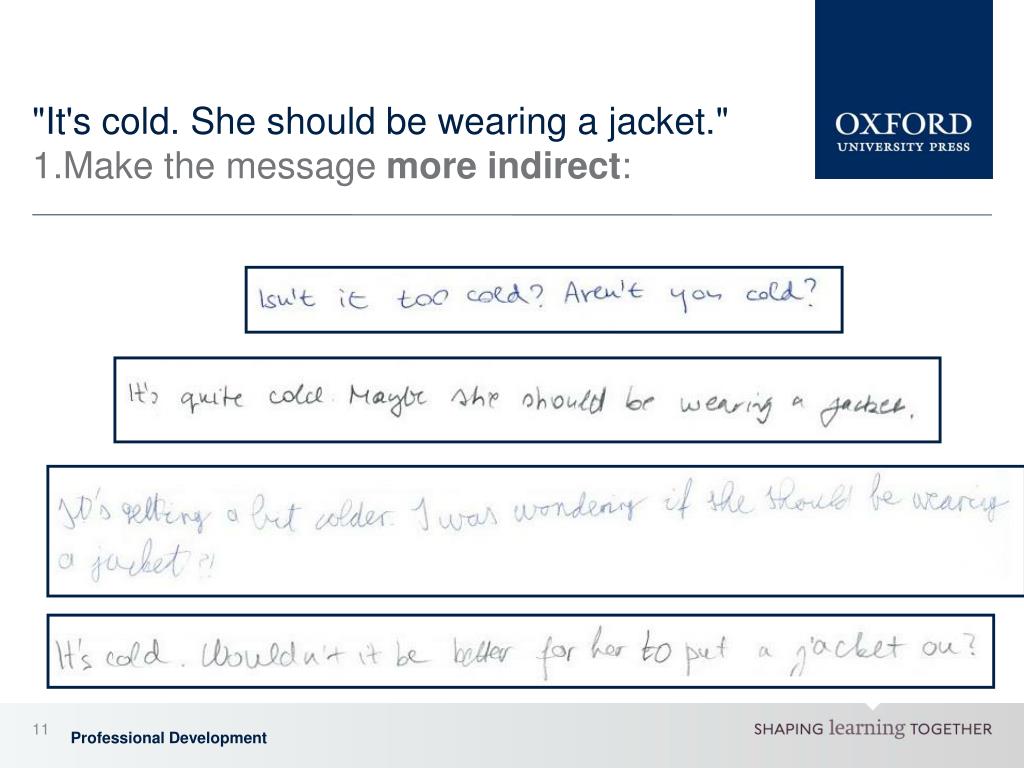 "It's cold. She should be wearing a jacket."
1.Make the message more indirect:
OXFORD
UNIVERSITY PRESS
Isn't it too cold? Aren't you cold?
It's quite cold. Maybe she should be wearing a jacket.
It's getting a bit colder. I was wondering if she should be wearing
a jacket?!
It's cold. Wouldn't it be better for her to put a jacket on?
11
Professional Development
SHAPING learning TOGETHER